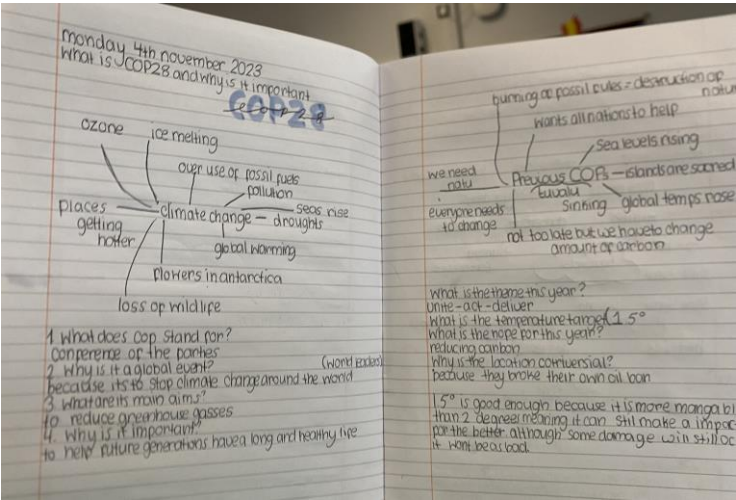 monday 4th november 2023
What is COP28 and why is it important
COP28
ozone
ice melting
over use of fossil fuels
pollution
seas rise
places getting hotter
climate change
droughts
global warming
flowers in antarctica
loss of wildlife
1 What does cop stand for?
conference of the parties
2 Why is it a global event?
(World leaders)
because its to stop climate change around the world
3 What are its main aims?
to reduce greenhouse gasses
4. Why is it important
to help future generations have a long and healthy life
burning of fossil fules = destruction of natu
Wants all nations to help
Sea levels rising
we need natu
Previous COPs
islands are sacred
tuvalu
sinking
global temps rose
everyone needs to change
not too late but we have to change
amount of carbon
What is the theme this year?
unite-act-deliver
What is the temperature target 1.5°
What is the hope for this year?
reducing carbon
Why is the location controversial?
because they broke their own oil ban
1.5° is good enough because it is more mangabl
than 2 degrees meaning it can still make a impac
for the better. although some damage will still oc
it wont be as bad.